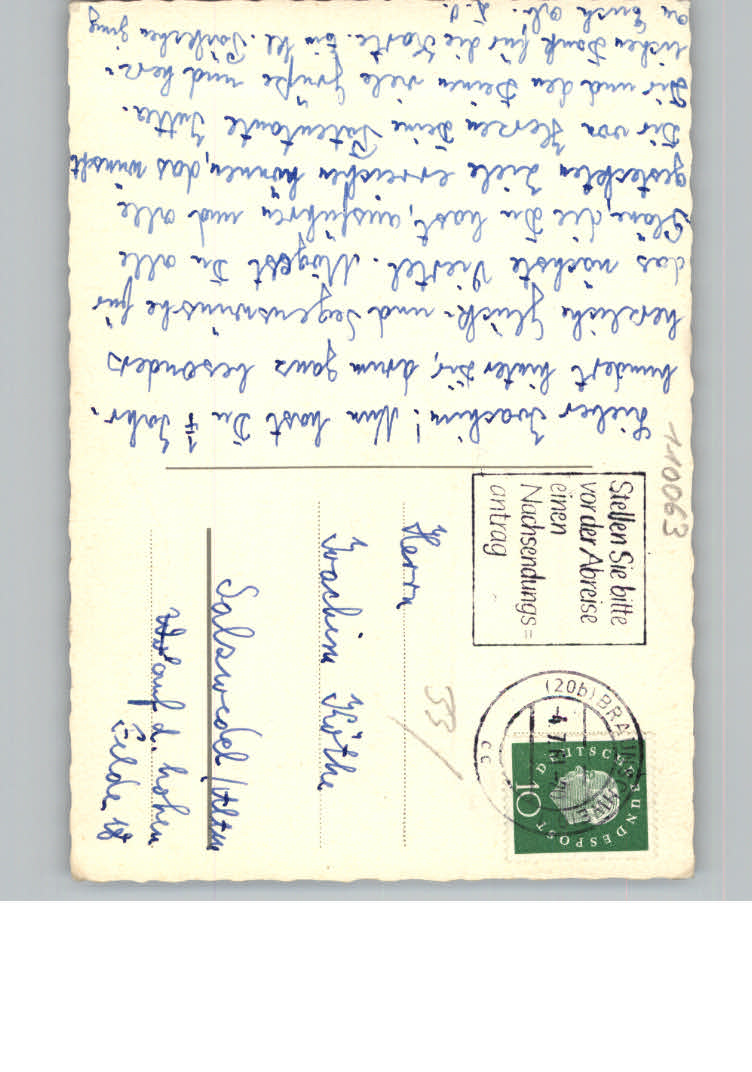 Lieber Joachim! Nun hast Du 1/4 Jahr-
hundert hinter Dir, drum ganz besonders
herzliche Glück- und Segenswünsche für
das nächste Viertel. Mögest Du alle
Pläne, die Du hast, ausführen und alle
gesteckten Ziele erreichen können, das wünscht
Dir von Herzen Deine Patentante Jutta.
Dir und den Deinen viele Grüße und herz-
lichen Dank für die Karte. Ein kl. Päckchen ging
an Euch ab. D.O.
110063
Stellen Sie bitte
vor der Abreise
einen
Nachsendungs=
antrag
(20b) BRAUNSCHWEIG
-4.7.61
cc
DEUTSCHE BUNDESPOST
10
53
Herrn
Joachim Köthe
Salzwedel/Altm
Wo auf d. hohen
Felde 18